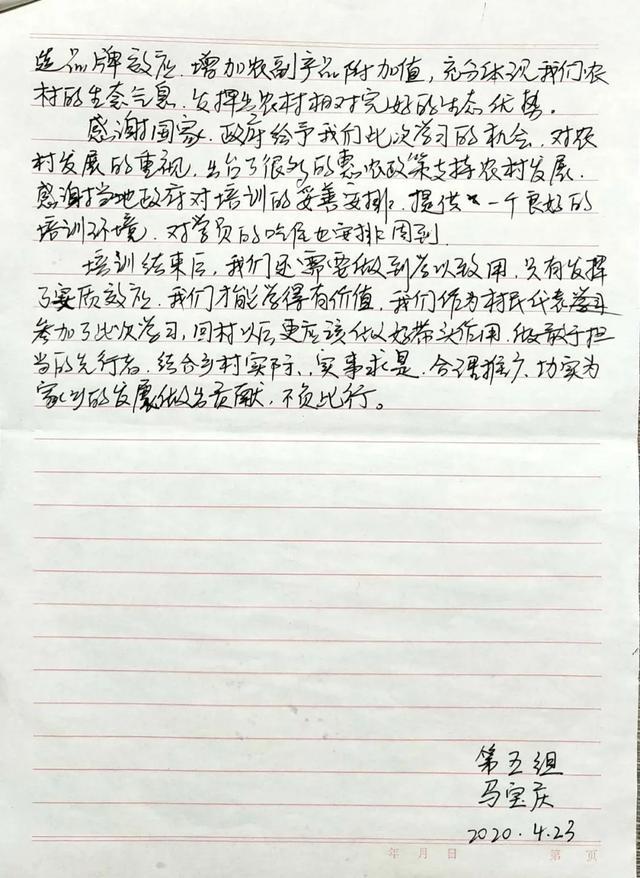 造品牌效应，增加农副产品附加值，充分体现我们农
村的生态气息，发挥出农村相对完好的生态优势。
感谢国家、政府给予我们此次学习的机会，对农
村发展的重视，出台了很多的惠农政策支持农村发展，
感谢当地政府对培训的妥善安排，提供了一个良好的
培训环境，对学员的吃住也安排周到。
培训结束后，我们还需要做到学以致用，只有发挥
了实质效应，我们才能学得有价值，我们作为村民代表
参加了此次学习，回村以后更应该做好带头作用，做敢于担
当的先行者，结合乡村实际，实事求是，合理推广，切实为
家乡的发展做出贡献，不负此行。
第五组
马宝庆
2020.4.23
年 月 日 第 页